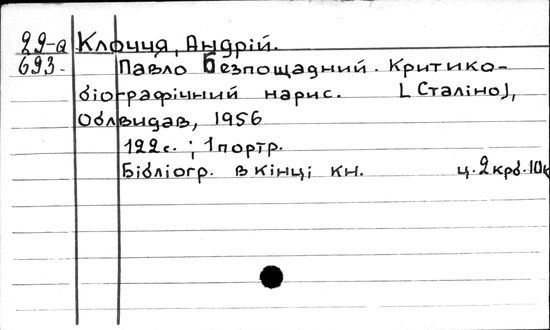 29-а Клоччя, Андрій.
693. Павло Безпощадний. Критико-
біографічний нарис. [Сталіно],
Облвидав, 1956
122с. ; 1 портр.
Бібліогр. в кінці кн. ц. 2 крб. 10к